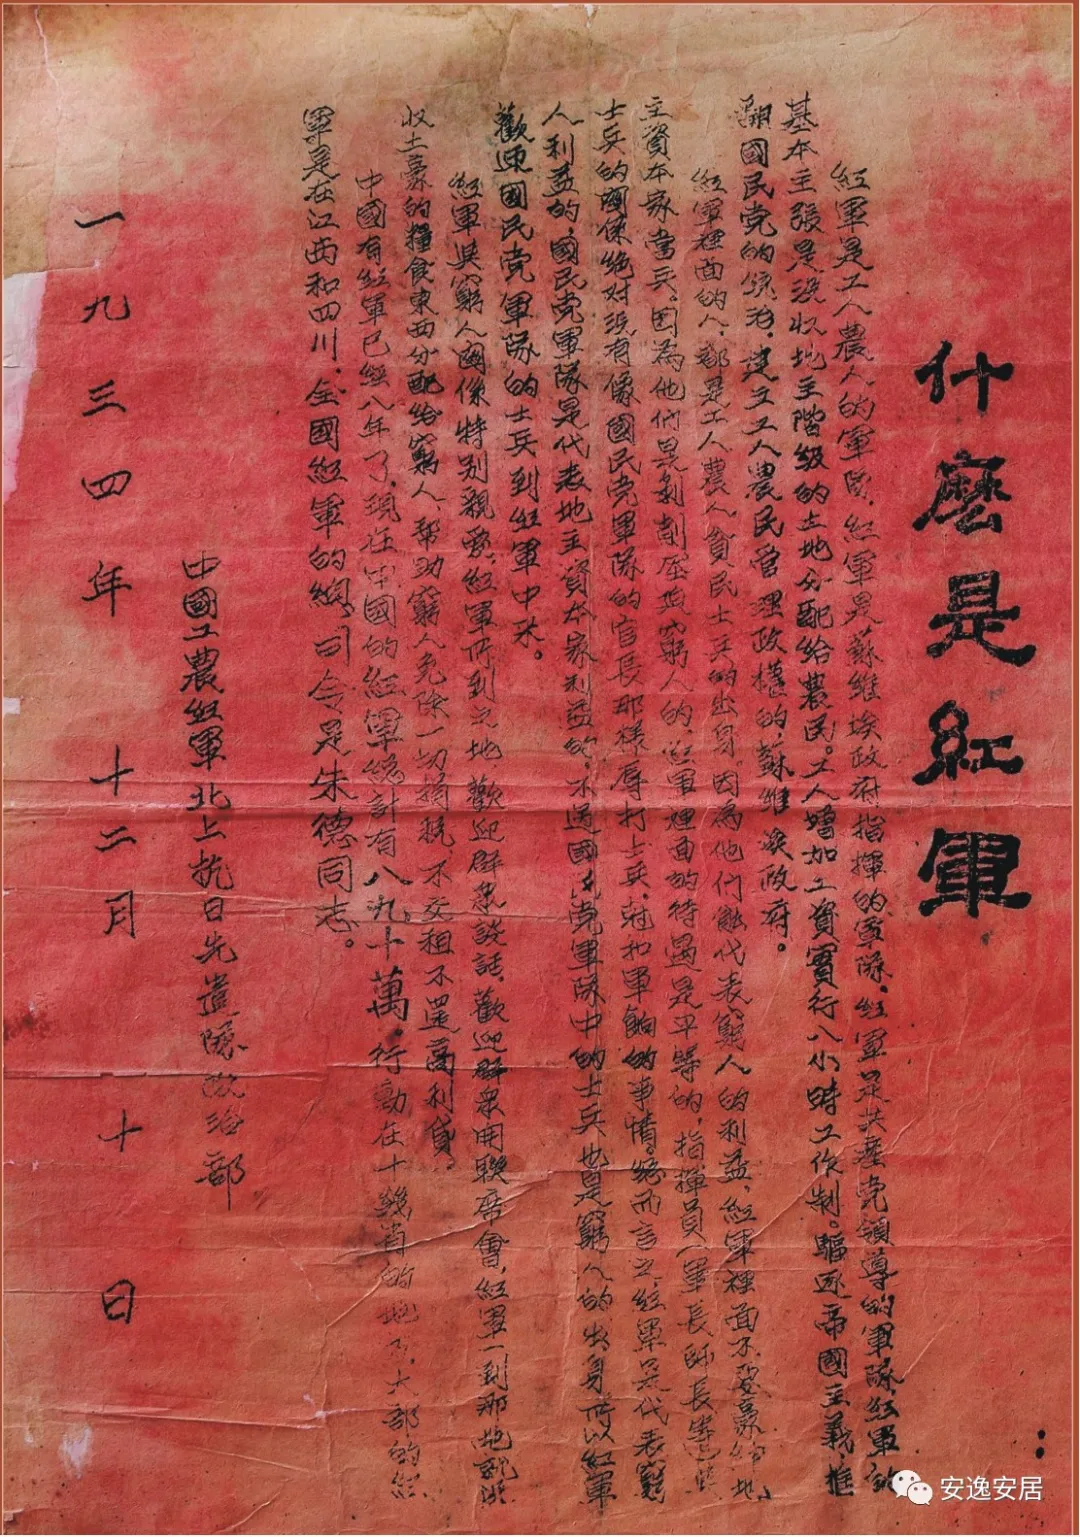 什麽是紅軍
紅軍是工人農人的軍隊，紅軍是蘇維埃政府指揮的軍隊，紅軍是共產党領導的軍隊，紅軍的
基本主張是没收地主階級的土地分配給農民。工人增加工資實行八小時工作制。驅逐帝國主義，推
翻國民党的統治，建立工人農民管理政權的，蘇維埃政府。
紅軍裡面的人，都是工人農人貧民士兵的出身，因為他們能代表窮人的利益，紅軍裡面不要豪紳地
主資本家當兵。因為他們是剝削壓迫窮人的，紅軍裡面的待遇是平等的，指揮員（軍長師長等）與
士兵的關係絶对没有像國民党軍隊的官長那樣辱打士兵，尅扣軍餉的事情。總而言之，紅軍是代表窮
人利益的，國民党軍隊是代表地主資本家利益的，不過國民党軍隊中的士兵也是窮人的出身，所以紅軍
歡迎國民党軍隊的士兵到紅軍中來。
紅軍與窮人關係特别親愛，紅軍所到之地歡迎群衆談話，歡迎群衆開聯席會，紅軍一到那地就没
收土豪的糧食東西分配給窮人、帮助窮人免除一切捐税，不交租不還高利貸。
中國有紅軍已經八年了，現在中國的紅軍總計有八九十萬，行動在十幾省的地方，大部的紅
軍是在江西和四川，全國紅軍的總司令是朱德同志。
中國工農紅軍北上抗日先遣隊政治部
一九三四年十二月十日
安逸安居